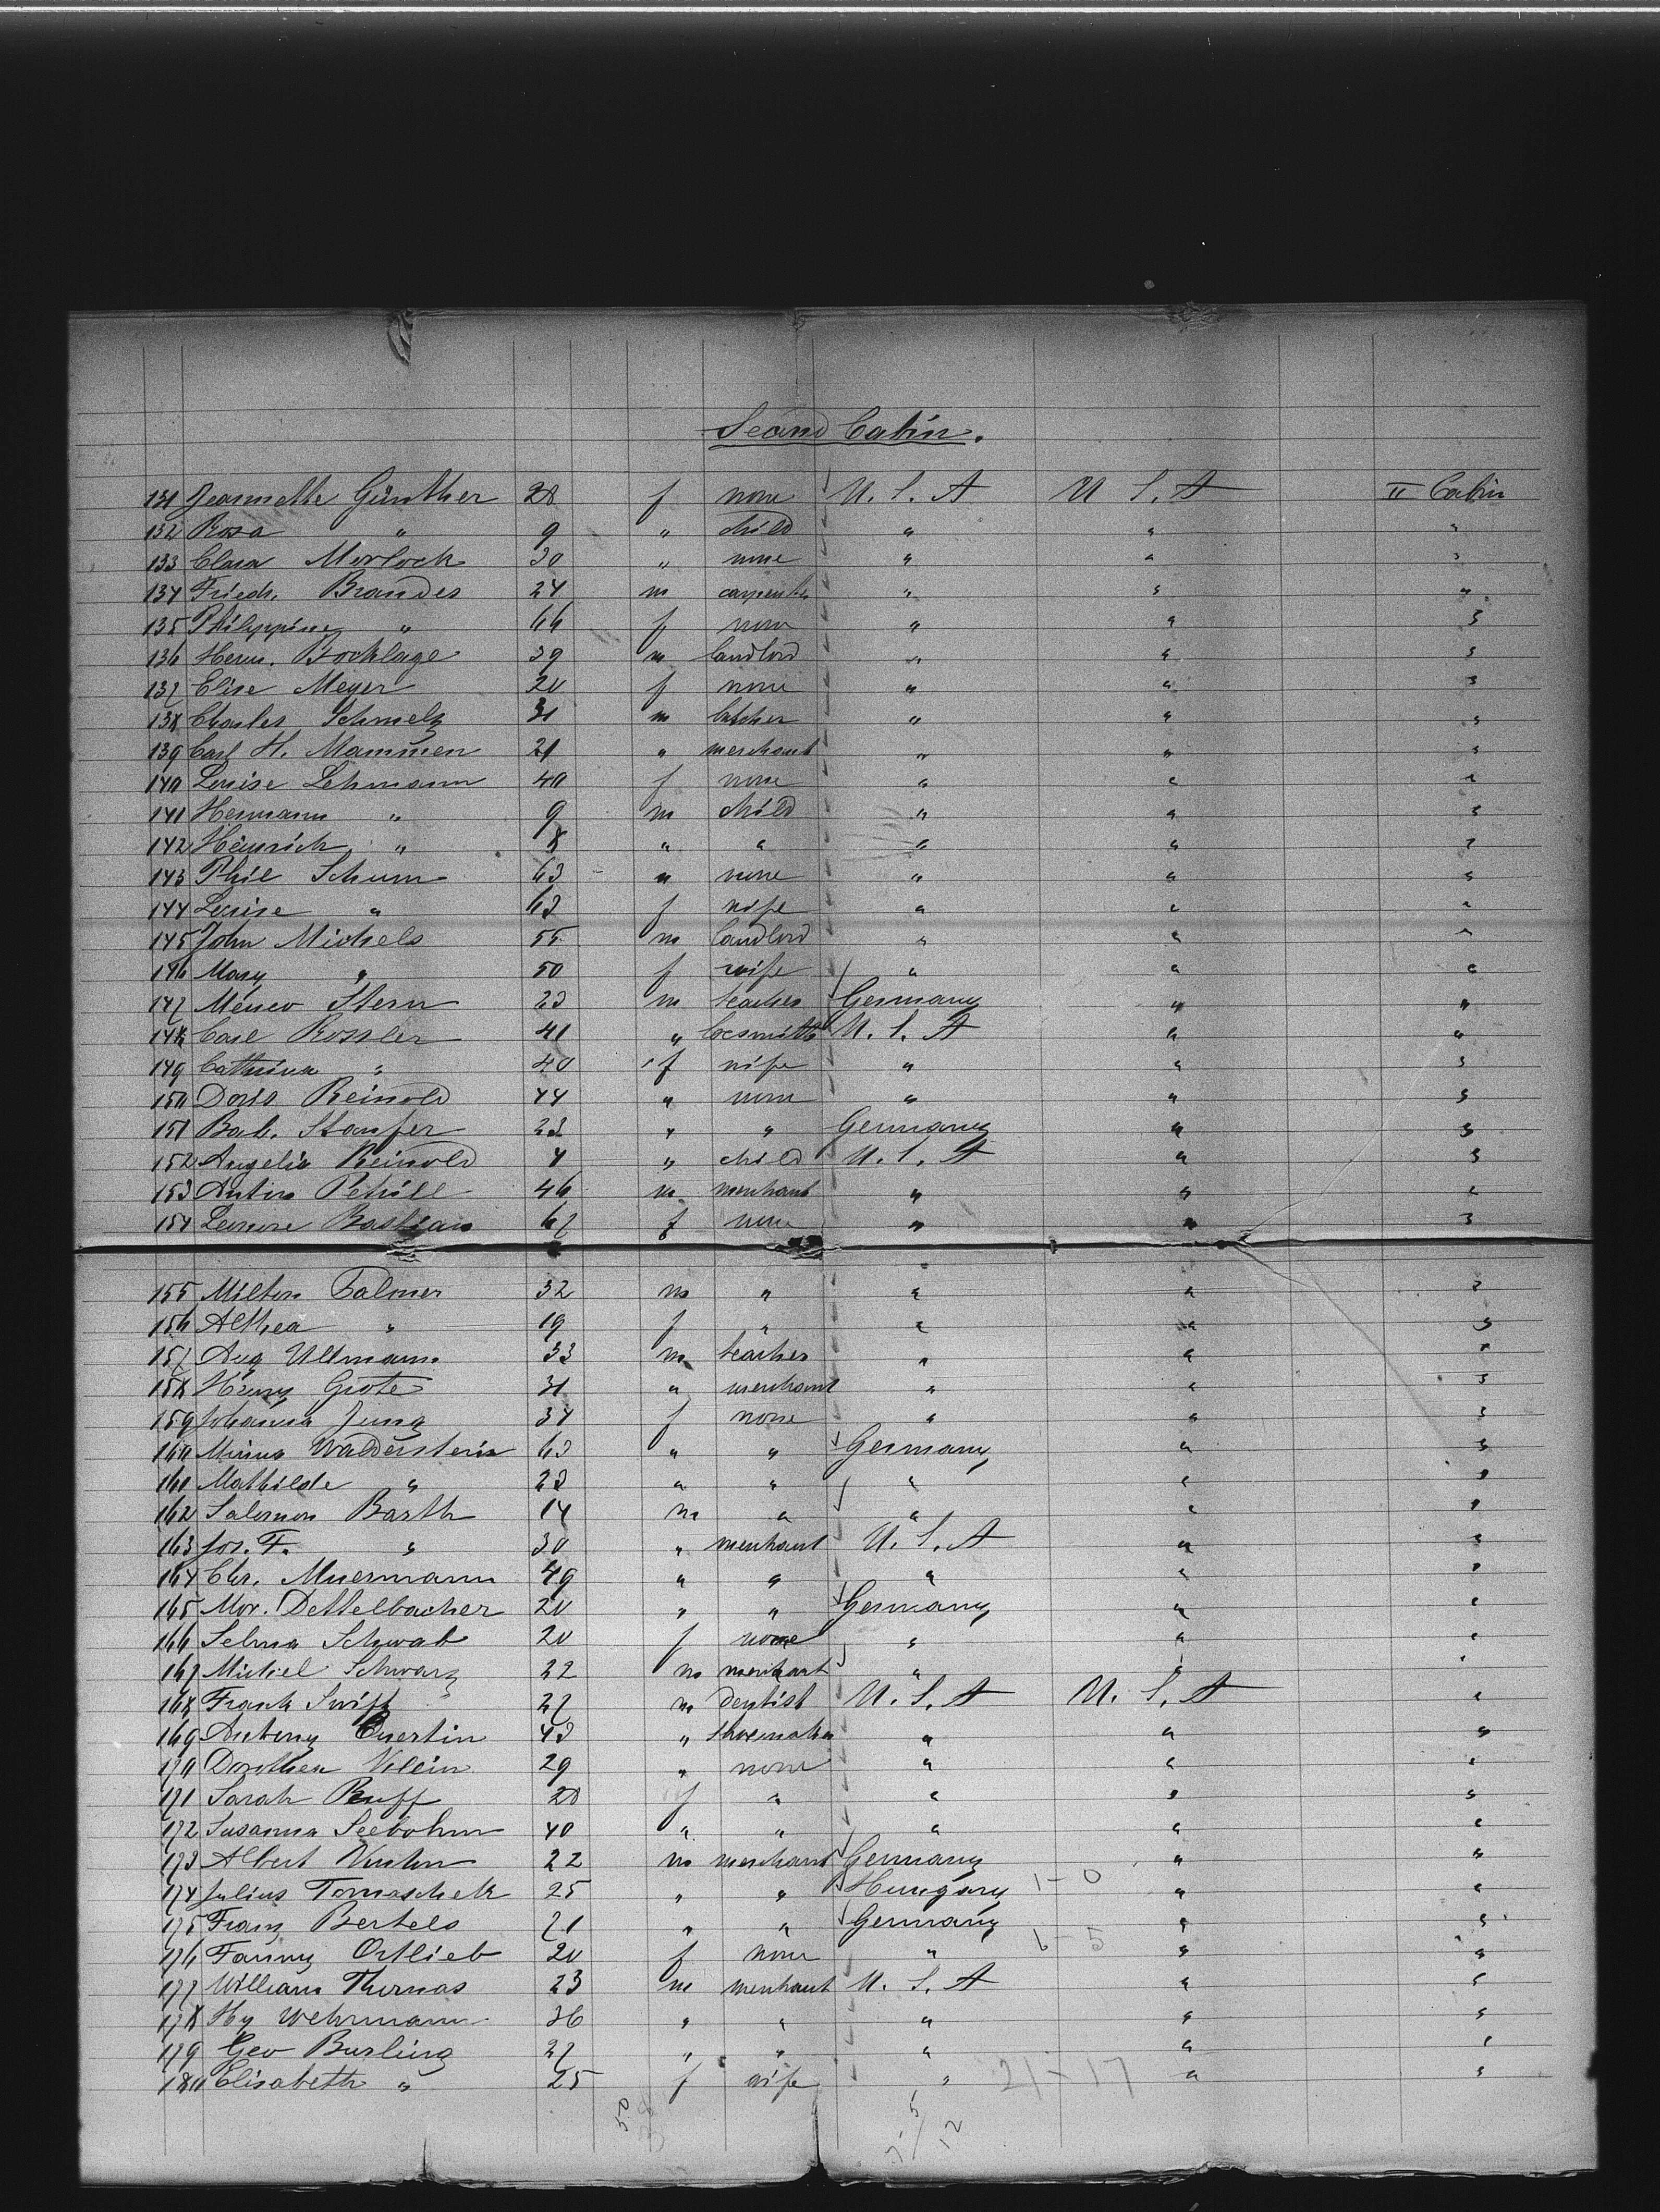 Second Cabin.
131 Jeannette Günther 28 f none U.S.A U.S.A II Cabin
132 Rosa " 9 " child " " "
133 Clara Morlock 30 " none " " "
134 Friedr. Brandes 24 m carpenter " " "
135 Philippine " 66 f none " " "
136 Herm. Bocklage 39 m landlord " " "
137 Elise Meyer 20 f none " " "
138 Charles Schmelz 31 m butcher " " "
139 Carl H. Mammen 21 " merchant " " "
140 Louise Lehmann 40 f none " " "
141 Hermann " 9 m child " " "
142 Heinrich " 8 " " " " "
143 Phil Schum 63 " none " " "
144 Louise " 63 f wife " " "
145 John Michels 55 m landlord " " "
146 Mary " 50 f wife " " "
147 Menco Stern 23 m teacher Germany " "
148 Carl Rossler 41 " locsmith U.S.A " "
149 Cathrina " 40 f wife " " "
150 Doris Reinold 44 " none " " "
151 Bab. Staufer 23 " " Germany " "
152 Angelia Reinold 4 " child U.S.A " "
153 Anton 46 m merchant " " "
154 Leonore Bastian 67 f none " " "
155 Milton Palmer 32 m " " " "
156 Althea " 19 f " " " "
157 Aug Ullmann 33 m teacher " " "
158 Henry Grote 31 " merchant " " "
159 Johanna Jung 34 f none " " "
160 Minna Walderstein 63 " " Germany " "
161 Mathilde " 23 " " " " "
162 Salomon Barth 14 m " " " "
163 Jos. F. " 30 " merchant U.S.A " "
164 Chr. Muermann 49 " " " " "
165 Mor. Dettelbacher 20 " " Germany " "
166 Selma Schwab 20 f none " " "
167 Michel Schwarz 22 m merchant " " "
168 Frank Swift 27 m dentist U.S.A U.S.A "
169 Anthony Quertin 43 " shoemaker " " "
170 Dorothea Klein 29 " none " " "
171 Sarah Ruff 28 f " " " "
172 Susanna Seebohm 40 " " " " "
173 Albert Kuhn 22 m merchant Germany " "
174 Julius Tomaschek 25 " " Hungary 1-0 " "
175 Franz Bertels 21 " " Germany " "
176 Fanny Ortlieb 20 f none " 6-5 " "
177 William Thomas 23 m merchant U.S.A " "
178 Hy Wehrmann 36 " " " " "
179 Geo Burling 27 " " " " "
180 Elisabeth " 25 f wife " 21-17 " "
50
5
12